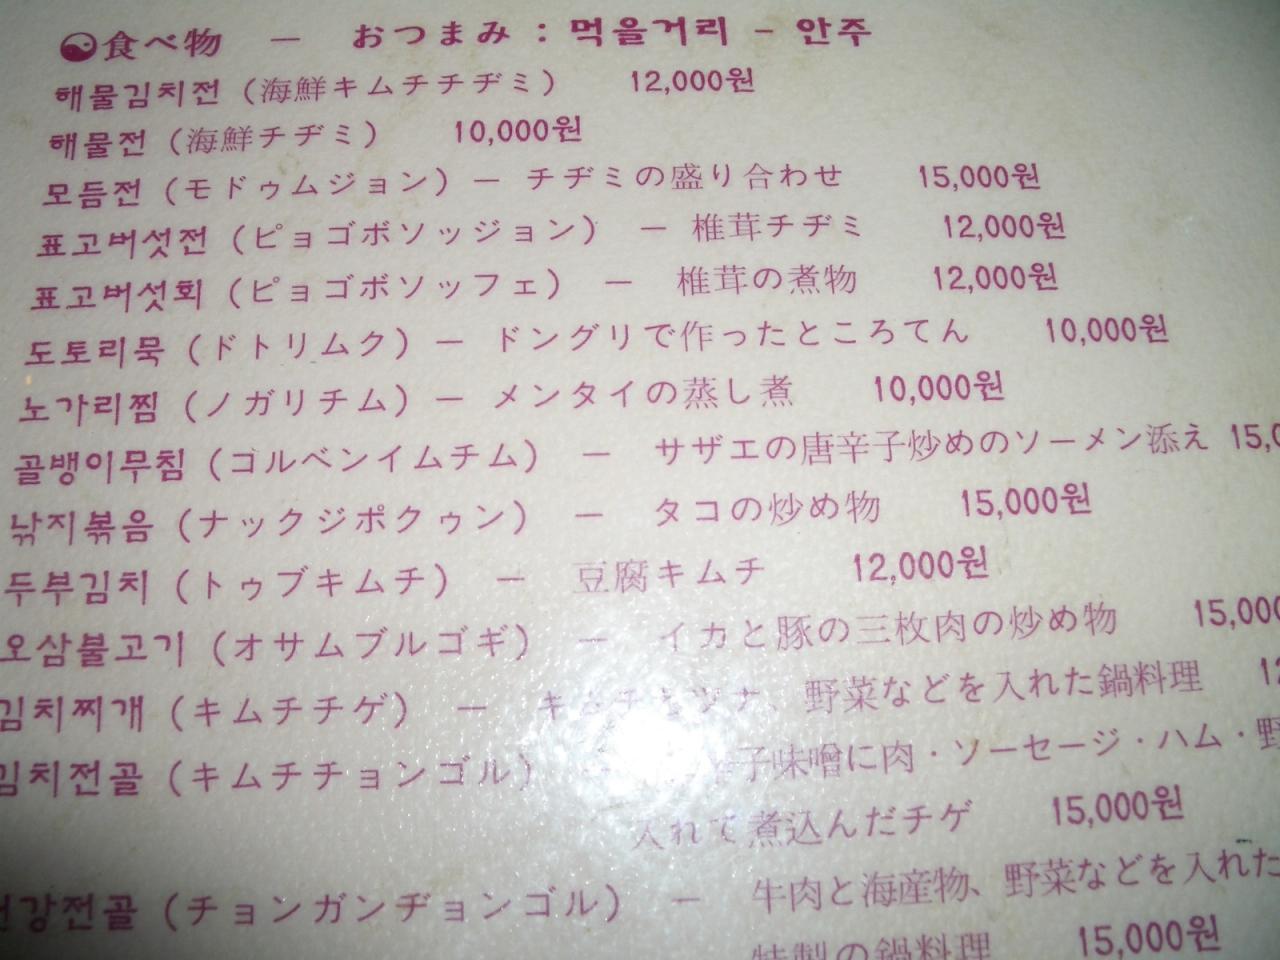 食べ物 － おつまみ : 먹을거리 - 안주
해물김치전 (海鮮キムチチヂミ) 12,000원
해물전 (海鮮チヂミ) 10,000원
모듬전 (モドゥムジョン) － チヂミの盛り合わせ 15,000원
표고버섯전 (ピョゴボソッジョン) － 椎茸チヂミ 12,000원
표고버섯회 (ピョゴボソッフェ) － 椎茸の煮物 12,000원
도토리묵 (ドトリムク) － ドングリで作ったところてん 10,000원
노가리찜 (ノガリチム) － メンタイの蒸し煮 10,000원
골뱅이무침 (ゴルベンイムチム) － サザエの唐辛子炒めのソーメン添え
낚지볶음 (ナックジポクゥン) － タコの炒め物 15,000원
두부김치 (トゥブキムチ) － 豆腐キムチ 12,000원
오삼불고기 (オサムブルゴギ) － イカと豚の三枚肉の炒め物 15,000
김치찌개 (キムチチゲ) － キムチとツナ、野菜などを入れた鍋料理
김치전골 (キムチチョンゴル) － 子味噌に肉・ソーセージ・ハム・野
入れて煮込んだチゲ 15,000원
강전골 (チョンガンヂョンゴル) － 牛肉と海産物、野菜などを入れた
特製の鍋料理 15,000원